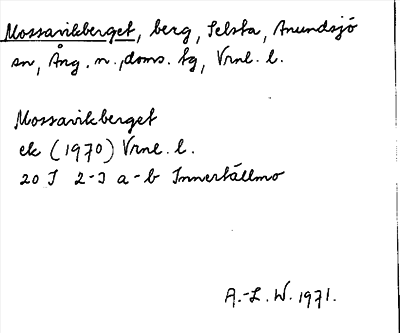 Mossavikberget, berg, Selsta, Anundsjö
sn, Ång. n., doms. tg, Vrnl. l.
Mossavikberget
ek (1970) Vrnl. l.
20 I 2-3 a-b Innertällmo
A.-L. W. 1971.